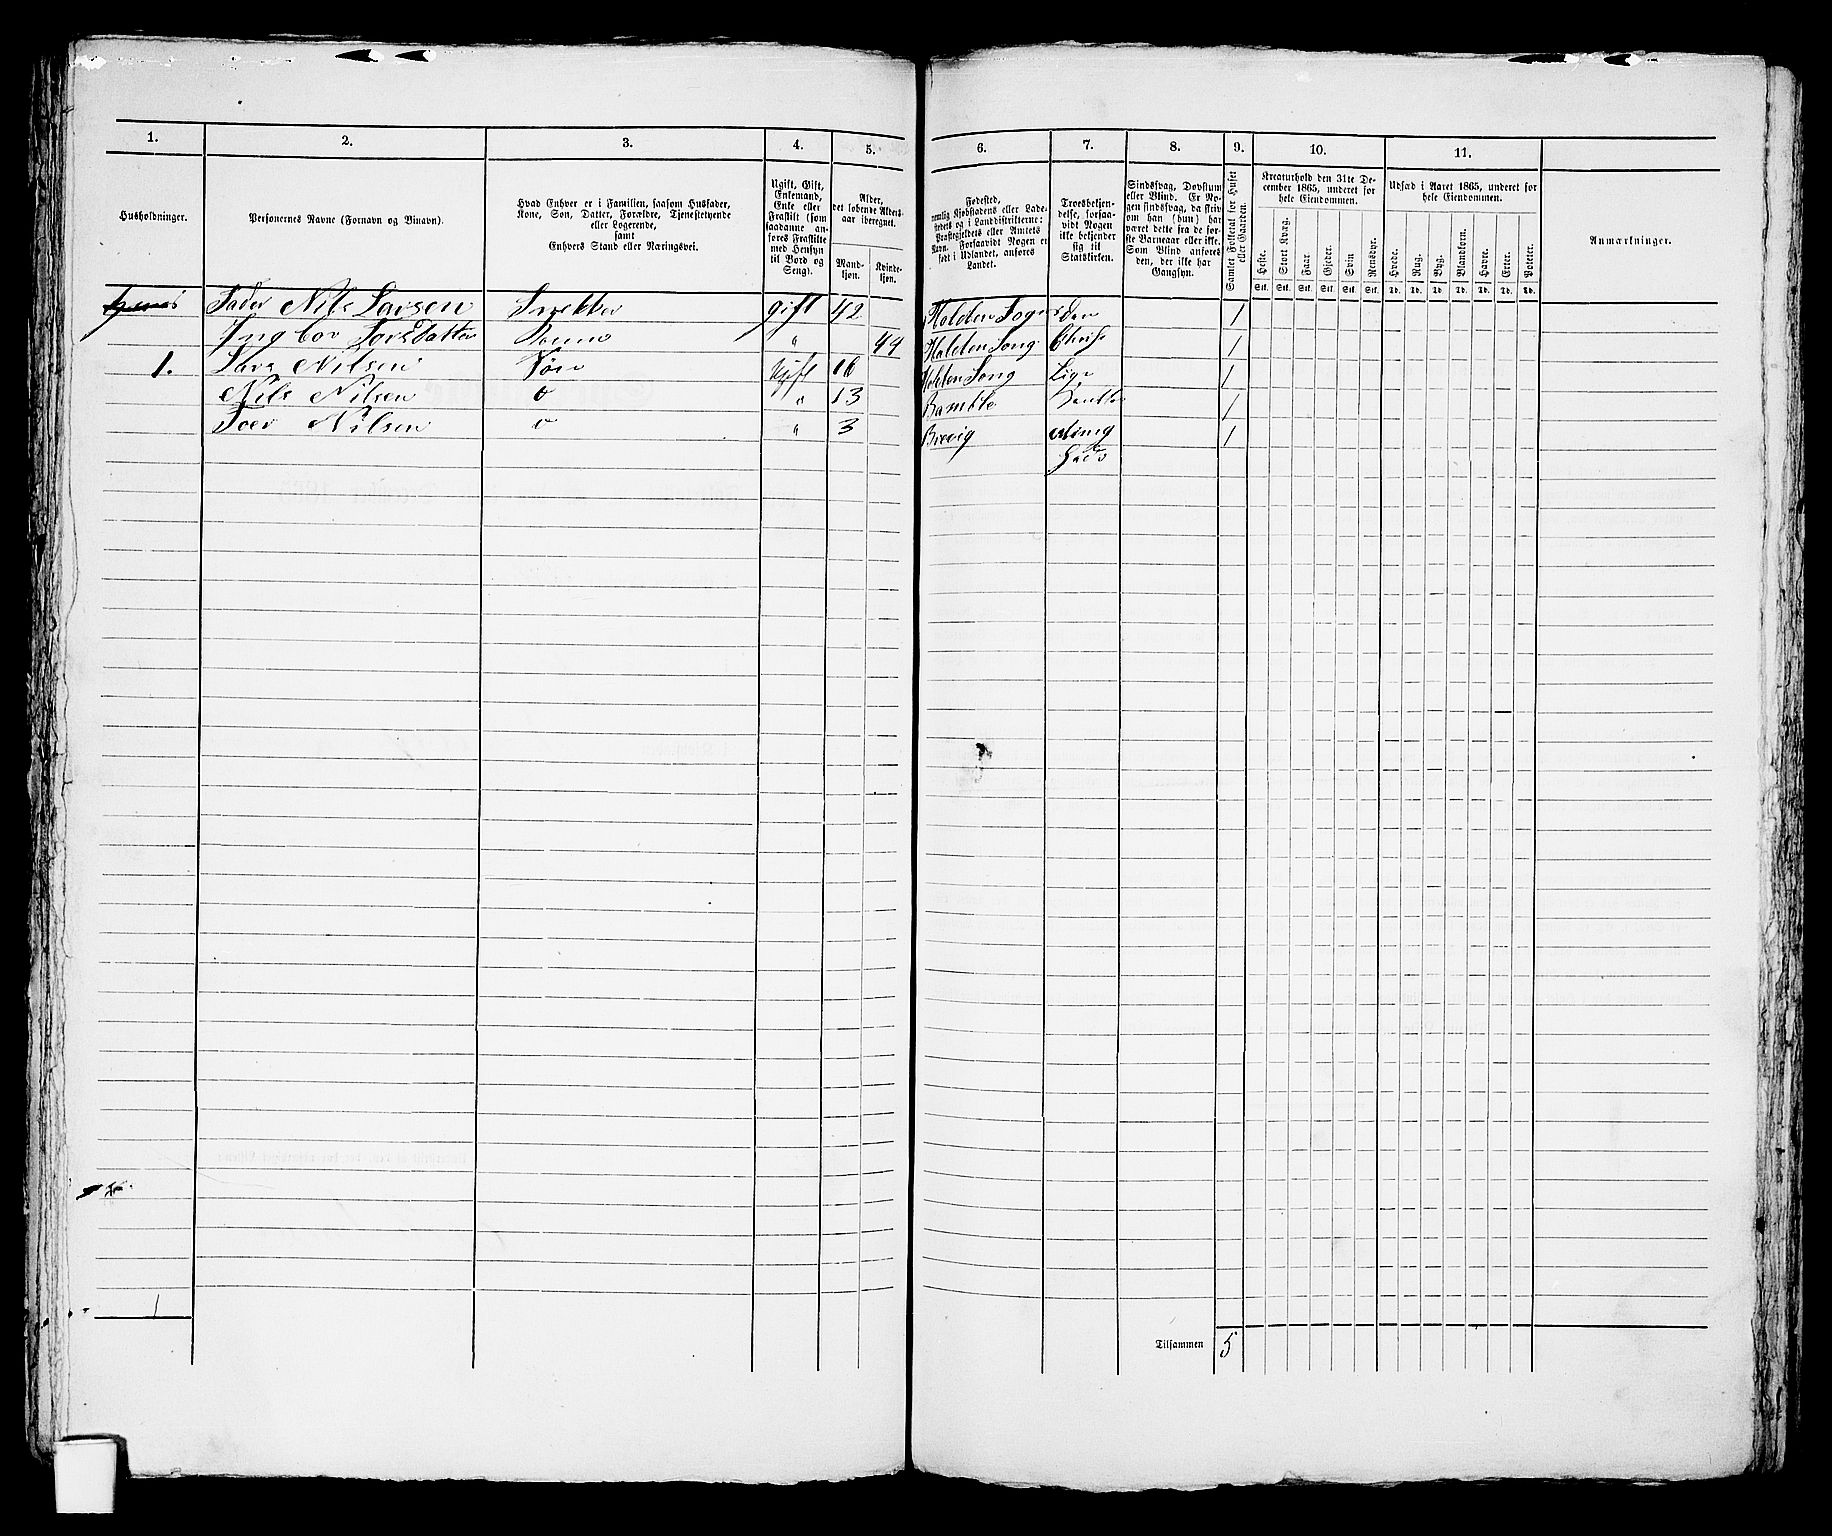 1.
2.
3.
4.
5.
Husholdninger.
Personernes Navne (Fornavn og Binavn).
Hvad Enhver er i Familien, saasom Husfader,
Kone, Søn, Datter, Forældre, Tjenestetyende
eller Logerende,
samt
Enhvers Stand eller Næringsvei.
Ugift, Gift,
Enkemand,
Enke eller
Fraskilt (som
saadanne an-
føres Fraskilte
med Hensyn
til Bord og
Seng).
Alder,
det løbende Alders-
aar iberegnet.
Mand-
kjøn.
Kvinde-
kjøn.
Fader Nils Larsen Snekker gift 42
Ingbor Larsdatter Konne " 44
1. Lars Nilsen Søn Ugift 16
Nils Nilsen o " 13
Toer Nilsen o " 3
1
6.
7.
8.
9.
10.
11.
Fødested,
nemlig Kjøbstadens eller Lade-
stedets og i Landdistrikterne:
Præstegjeldets eller Amtets
Navn. Forsaavidt Nogen er
født i Udlandet, anføres
Landet.
Troesbekjen-
delse, forsaa-
vidt Nogen
ikke bekjender
sig til
Statskirken.
Sindssvag, Døvstum
eller Blind. Er No-
gen sindssvag, da skriv
om han (hun) har
været dette fra de før-
ste Barneaar eller ikke.
Som Blind anføres
den, der ikke har
Gangsyn.
Samlet Folketal for Huset
eller Gaarden.
Kreaturhold den 31te De-
cember 1865, underet for
hele Eiendommen.
Heste.
Stort Kvæg.
Faar.
Gjeder.
Svin
Rensdyr.
Stk. Stk. Stk. Stk. Stk. Stk.
Udsæd i Aaret 1865, underet for
hele Eiendommen.
Hvede.
Rug.
Byg.
Blandkorn.
Havre.
Erter.
Poteter.
Td. Td. Td. Td. Td. Td. Td.
Anmærkninger.
Holden Sogn Den 1
Holden Song Christ 1
Holden Song Lige 1
Bamble 1
Brevig 1
Tilsammen 5